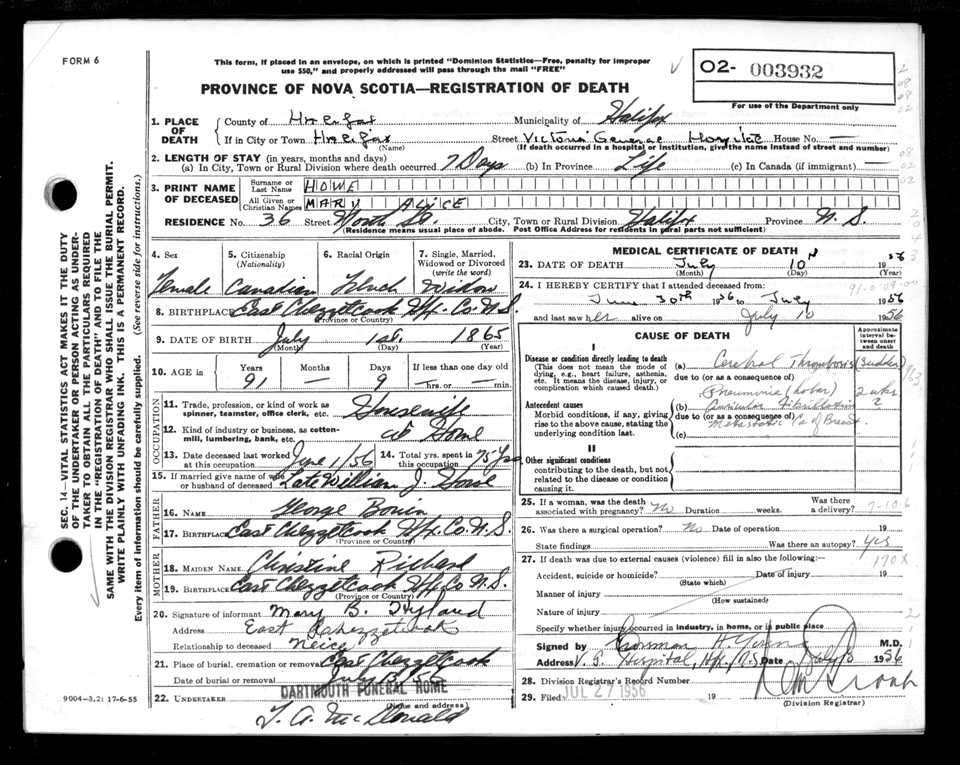 FORM 6
This form, if placed in an envelope, on which is printed "Dominion Statistics—Free, penalty for improper
use $50," and properly addressed will pass through the mail "FREE"
02- 003932
For use of the Department only
PROVINCE OF NOVA SCOTIA—REGISTRATION OF DEATH
SEC. 14—VITAL STATISTICS ACT MAKES IT THE DUTY
OF THE UNDERTAKER OR PERSON ACTING AS UNDER-
TAKER TO OBTAIN ALL THE PARTICULARS REQUIRED
IN THE "REGISTRATION OF DEATH" AND TO FILE THE
SAME WITH THE DIVISION REGISTRAR WHO SHALL ISSUE THE BURIAL PERMIT.
WRITE PLAINLY WITH UNFADING INK. THIS IS A PERMANENT RECORD.
Every item of information should be carefully supplied. (See reverse side for instructions.)
1. PLACE OF DEATH
County of Halifax Municipality of Halifax
If in City or Town Halifax Street Victoria General Hospital House No. —
(Name) (If death occurred in a hospital or institution, give the name instead of street and number)
2. LENGTH OF STAY (in years, months and days)
(a) In City, Town or Rural Division where death occurred 7 Days (b) In Province Life (c) In Canada (if immigrant) —
3. PRINT NAME OF DECEASED
Surname or Last Name HOWE
All Given or Christian Names MARY ALICE
RESIDENCE No. 36 Street North St. City, Town or Rural Division Halifax Province N. S.
(Residence means usual place of abode. Post Office Address for residents in rural parts not sufficient)
4. Sex 5. Citizenship (Nationality) 6. Racial Origin 7. Single, Married, Widowed or Divorced (write the word)
Female Canadian French Widow
8. BIRTHPLACE East Chezzetcook Hfx. Co. N.S.
(Province or Country)
9. DATE OF BIRTH July 1st. 1865
(Month) (Day) (Year)
10. AGE Years 91 Months — Days 9 If less than one day old — hrs. or — min.
OCCUPATION
11. Trade, profession, or kind of work as spinner, teamster, office clerk, etc. Housewife
12. Kind of industry or business, as cotton-mill, lumbering, bank, etc. at Home
13. Date deceased last worked at this occupation June 1/56 14. Total yrs. spent in this occupation 75 yrs
15. If married give name of wife or husband of deceased Late William J. Howe
FATHER
16. Name George Bonin
17. Birthplace East Chezzetcook Hfx. Co. N.S.
(Province or Country)
MOTHER
18. MAIDEN NAME Christine Richard
19. BIRTHPLACE East Chezzetcook Hfx Co N.S.
(Province or Country)
20. Signature of informant Mary B. Hyland
Address East Chezzetcook
Relationship to deceased Neice
21. Place of burial, cremation or removal East Chezzetcook
Date of burial or removal July 13/56
22. UNDERTAKER DARTMOUTH FUNERAL HOME
(Name and address)
T. A. McDonald
9004-3.2: 17-6-55
MEDICAL CERTIFICATE OF DEATH
23. DATE OF DEATH July 10 1956
(Month) (Day) (Year)
24. I HEREBY CERTIFY that I attended deceased from:
June 30th 1956 to July 1956
and last saw her alive on July 10 1956
CAUSE OF DEATH
Approximate interval between onset and death
I
Disease or condition directly leading to death
(This does not mean the mode of dying, e.g., heart failure, asthenia, etc. It means the disease, injury, or complication which caused death.)
(a) Cerebral Thrombosis (Sudden)
due to (or as a consequence of)
Pneumonia (Lobar) 2 wks
Antecedent causes
Morbid conditions, if any, giving rise to the above cause, stating the underlying condition last.
(b) Auricular Fibrillation ?
due to (or as a consequence of)
Metastatic Ca of Breast
(c)
II
Other significant conditions
contributing to the death, but not related to the disease or condition causing it.
25. If a woman, was the death associated with pregnancy? No Duration weeks. Was there a delivery?
26. Was there a surgical operation? No Date of operation 19
State findings Was there an autopsy? Yes
27. If death was due to external causes (violence) fill in also the following:
Accident, suicide or homicide? Date of injury 19
(State which)
Manner of injury
(How sustained)
Nature of injury
170X
Specify whether injury occurred in industry, in home, or in public place
Signed by Norman H. M.D.
Address V. G. Hospital, Hfx N.S. Date July 1956
28. Division Registrar's Record Number
29. Filed JUL 27 1956 19
(Division Registrar)